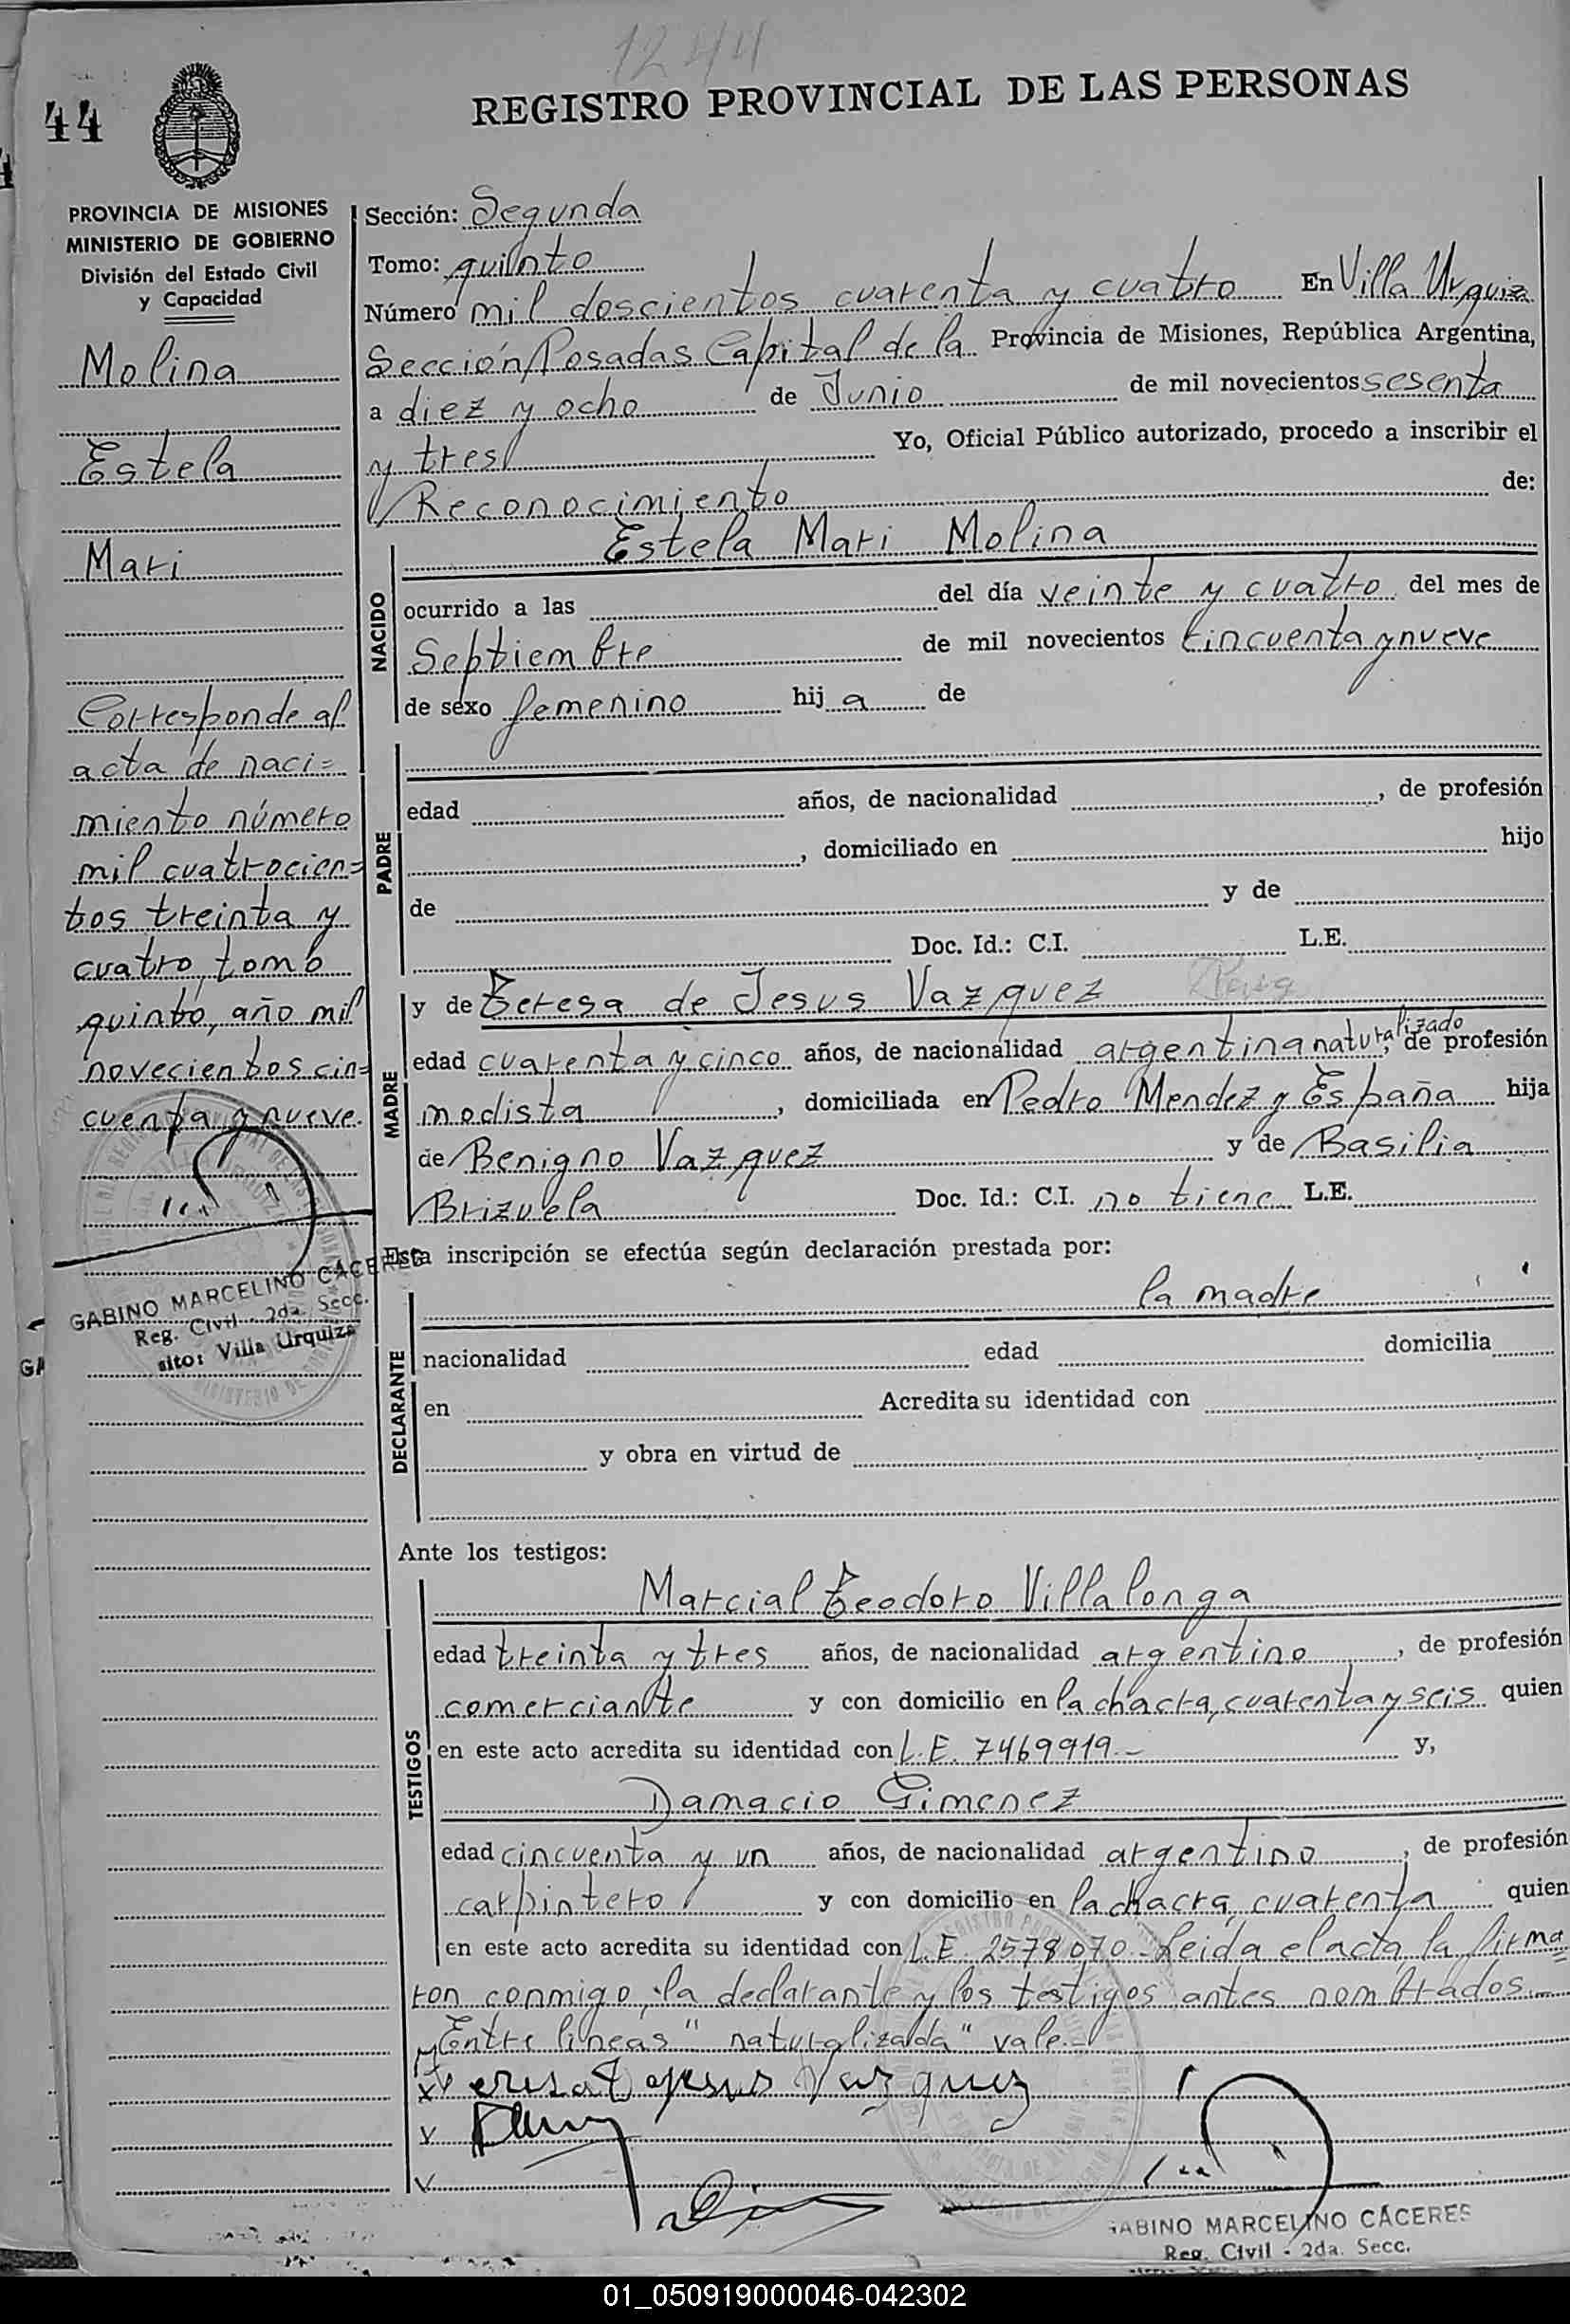 1244
44
REGISTRO PROVINCIAL DE LAS PERSONAS
PROVINCIA DE MISIONES
MINISTERIO DE GOBIERNO
División del Estado Civil
y Capacidad
Molina
Estela
Mari
Corresponde al
acta de naci=
miento número
mil cuatrocien=
tos treinta y
cuatro, tomo
quinto, año mil
novecientos cin=
cuenta y nueve.
GABINO MARCELINO CACERES
Reg. Civil - 2da. Secc.
sito: Villa Urquiza
Sección: Segunda
Tomo: quinto
Número mil doscientos cuarenta y cuatro En Villa Urquiza
Sección Posadas Capital de la Provincia de Misiones, República Argentina,
a diez y ocho de Junio de mil novecientos sesenta
y tres Yo, Oficial Público autorizado, procedo a inscribir el
Reconocimiento de:
NACIDO
Estela Mari Molina
ocurrido a las del día veinte y cuatro del mes de
Septiembre de mil novecientos cincuenta y nueve
de sexo femenino hij a de
PADRE
edad años, de nacionalidad , de profesión
, domiciliado en hijo
de y de
Doc. Id.: C.I. L.E.
MADRE
y de Teresa de Jesus Vazquez
edad cuarenta y cinco años, de nacionalidad argentina naturalizado, de profesión
modista , domiciliada en Pedro Mendez y España hija
de Benigno Vazquez y de Basilia
Brizuela Doc. Id.: C.I. no tiene L.E.
Esta inscripción se efectúa según declaración prestada por:
DECLARANTE
la madre
nacionalidad edad domicilia
en Acredita su identidad con
y obra en virtud de
Ante los testigos:
TESTIGOS
Marcial Teodoro Villalonga
edad treinta y tres años, de nacionalidad argentino , de profesión
comerciante y con domicilio en la chacra, cuarenta y seis quien
en este acto acredita su identidad con L.E. 7469919.- y,
Damacio Gimenez
edad cincuenta y un años, de nacionalidad argentino , de profesión
carpintero y con domicilio en la chacra, cuarenta quien
en este acto acredita su identidad con L.E. 2578070.- Leida el acta, la firma=
ron conmigo, la declarante y los testigos antes nombrados.
y Entre lineas "naturalizada" vale.-
x Teresa de Jesus Vazquez
x
x
GABINO MARCELINO CACERES
Reg. Civil - 2da. Secc.
01_050919000046-042302